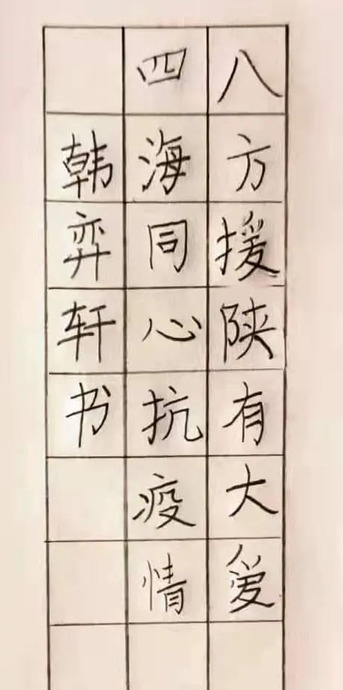 八方援陕有大爱
四海同心抗疫情
韩弈轩书